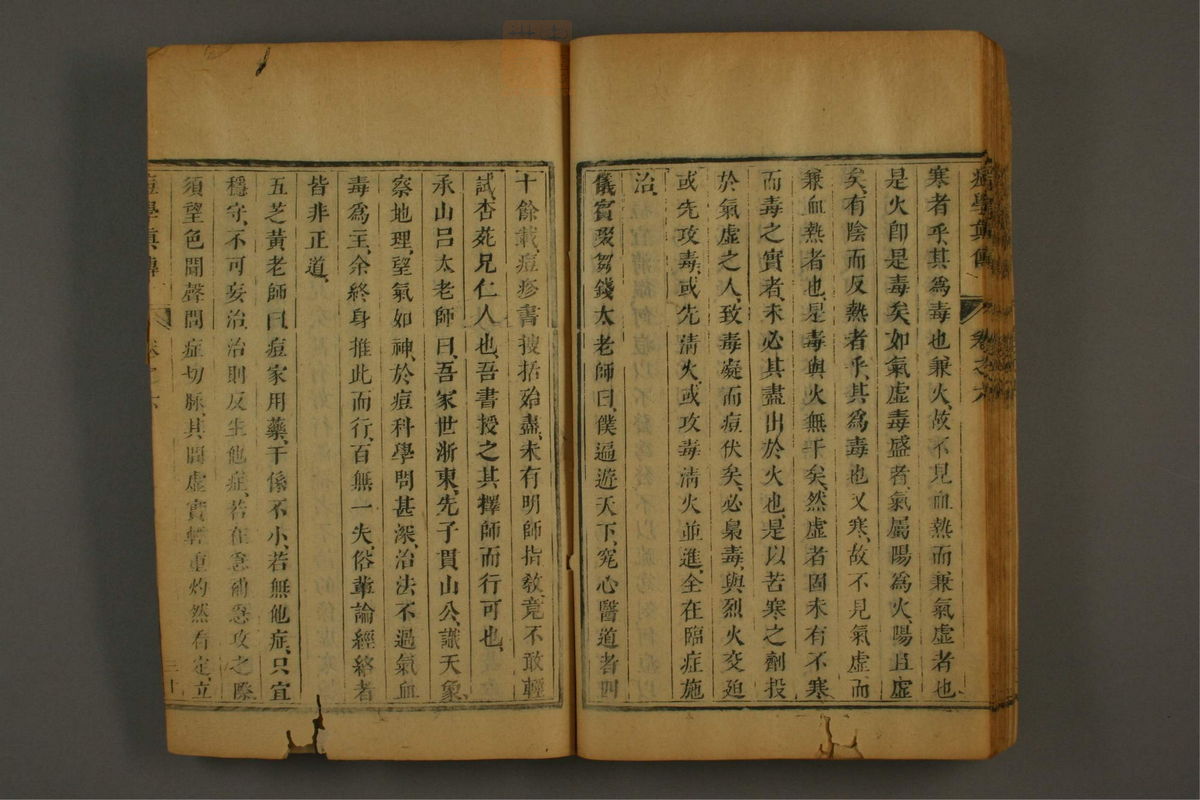 痘學真傳 卷之六
寒者乎其為毒也兼火故不見血熱而兼氣虛者也
是火卽是毒矣如氣虛毒盛者氣屬陽為火陽且虛
矣有陰而反熱者乎其為毒也又寒故不見氣虛而
兼血熱者也是毒與火無干矣然虛者固未有不寒
而毒之實者未必其盡出於火也是以苦寒之劑投
於氣虛之人致毒凝而痘伏矣必梟毒與烈火交廹
或先攻毒或先清火或攻毒清火並進全在臨症施
治
儀賓聚芻錢太老師曰僕遍遊天下究心醫道者四
十餘載痘疹書搜括殆盡未有明師指敎竟不敢輕
試杏苑兄仁人也吾書授之其擇師而行可也
承山呂太老師曰吾家世浙東先子貫山公識天象
察地理望氣如神於痘科學問甚深治法不過氣血
毒為主余終身推此而行百無一失俗輩論經絡者
皆非正道
五芝黃老師曰痘家用藥干係不小若無他症只宜
穩守不可妄治治則反生他症若在急補急攻之際
須望色聞聲問症切脉其間虛實輕重灼然看定立
痘學真傳 卷之六 三十